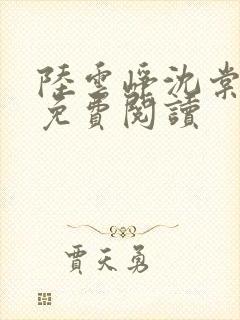 陸雲崢沈棠
免費閱讀
賈天勇